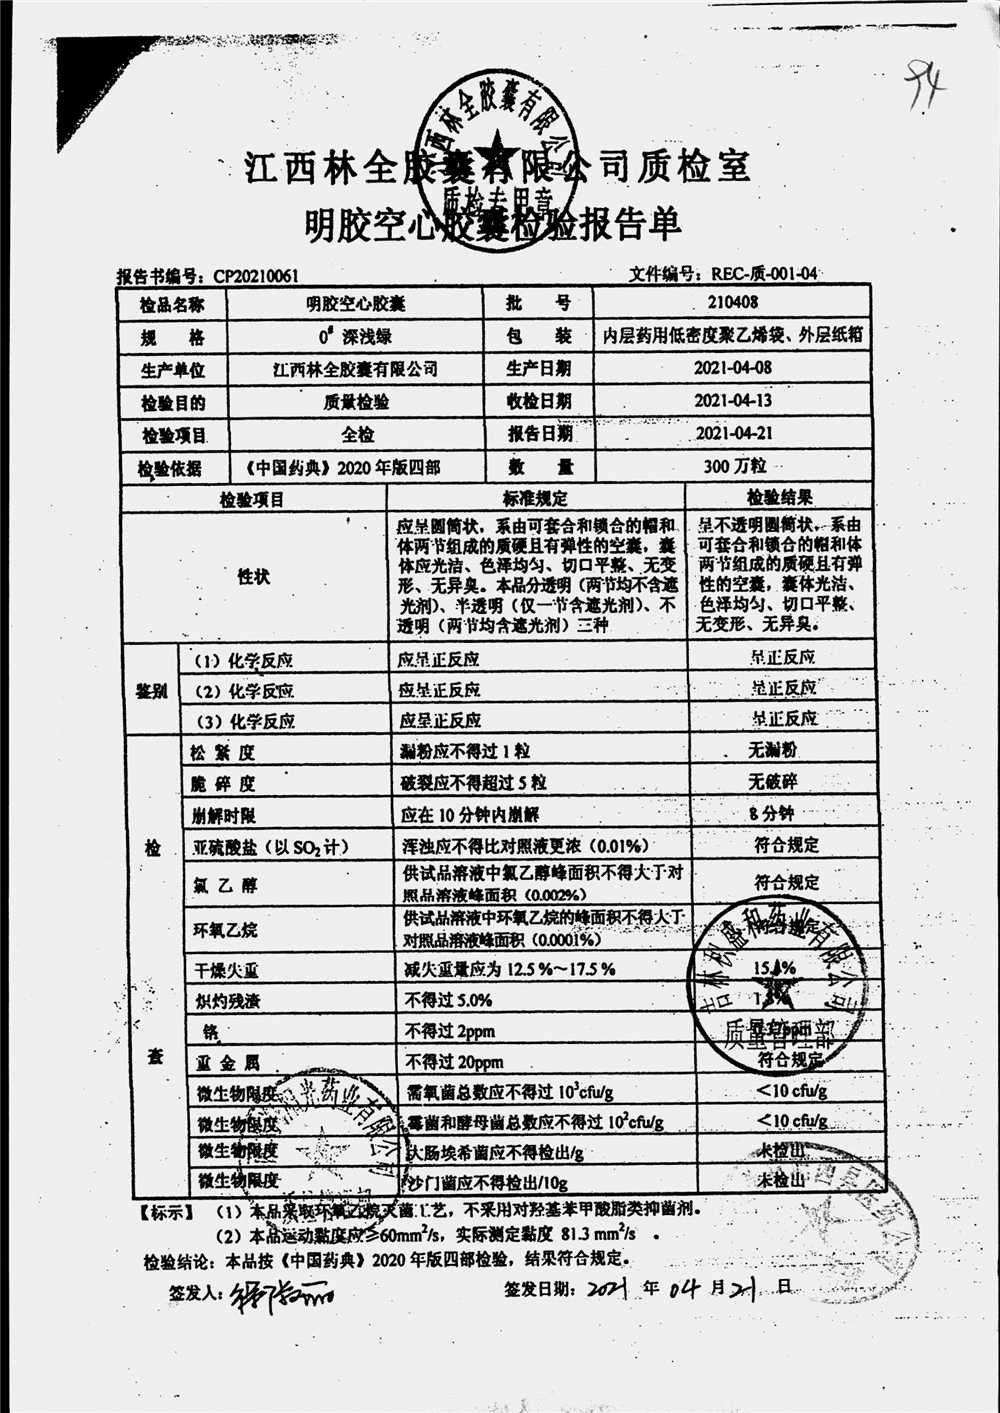 94
江西林全胶囊有限公司质检室
明胶空心胶囊检验报告单
江西林全胶囊有限公司
质检专用章
报告书编号：CP20210061 文件编号：REC-质-001-04
检品名称 明胶空心胶囊 批 号 210408
规 格 0# 深浅绿 包 装 内层药用低密度聚乙烯袋、外层纸箱
生产单位 江西林全胶囊有限公司 生产日期 2021-04-08
检验目的 质量检验 收检日期 2021-04-13
检验项目 全检 报告日期 2021-04-21
检验依据 《中国药典》2020 年版四部 数 量 300 万粒
检验项目 标准规定 检验结果
性状
应呈圆筒状，系由可套合和锁合的帽和
体两节组成的质硬且有弹性的空囊，囊
体应光洁、色泽均匀、切口平整、无变
形、无异臭。本品分透明（两节均不含遮
光剂）、半透明（仅一节含遮光剂）、不
透明（两节均含遮光剂）三种
呈不透明圆筒状，系由
可套合和锁合的帽和体
两节组成的质硬且有弹
性的空囊，囊体光洁、
色泽均匀、切口平整、
无变形、无异臭。
鉴别
（1）化学反应 应呈正反应 呈正反应
（2）化学反应 应呈正反应 呈正反应
（3）化学反应 应呈正反应 呈正反应
检查
松 紧 度 漏粉应不得过 1 粒 无漏粉
脆 碎 度 破裂应不得超过 5 粒 无破碎
崩解时限 应在 10 分钟内崩解 8 分钟
亚硫酸盐（以 SO₂ 计） 浑浊应不得比对照液更浓（0.01%） 符合规定
氯 乙 醇 供试品溶液中氯乙醇峰面积不得大于对
照品溶液峰面积（0.002%） 符合规定
环氧乙烷 供试品溶液中环氧乙烷的峰面积不得大于
对照品溶液峰面积（0.0001%） 符合规定
干燥失重 减失重量应为 12.5 %～17.5 %
炽灼残渣 不得过 5.0%
铬 不得过 2ppm
重 金 属 不得过 20ppm 符合规定
微生物限度 需氧菌总数应不得过 10³cfu/g ＜10 cfu/g
微生物限度 霉菌和酵母菌总数应不得过 10²cfu/g ＜10 cfu/g
微生物限度 大肠埃希菌应不得检出/g 未检出
微生物限度 沙门菌应不得检出/10g 未检出
吉林积盛和药业有限公司
质量管理部
【标示】（1）本品采取环氧乙烷灭菌工艺，不采用对羟基苯甲酸脂类抑菌剂。
（2）本品运动黏度应≥60mm²/s，实际测定黏度 81.3 mm²/s 。
检验结论：本品按《中国药典》2020 年版四部检验，结果符合规定。
签发人： 签发日期：2021 年 04 月 21 日